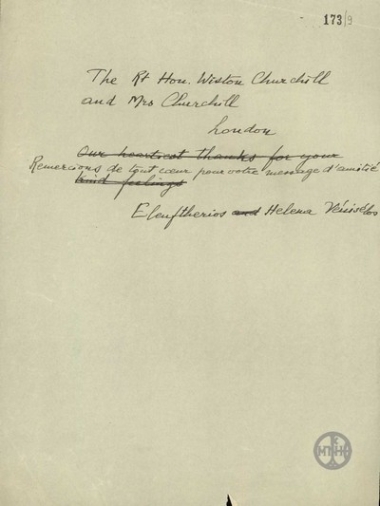 173/9
The Rt Hon. Wiston Churchill
and Mrs Churchill
London
Our heartiest thanks for your
Remercions de tout cœur pour votre message d'amitié
kind feelings
Eleuftherios and Helena Vénisélos